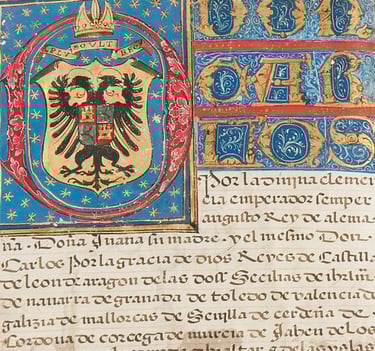 DON
CAR
LOS
Por la diuina clemen
cia emperador semper
augusto Rey de alema
ña . Doña Juana su madre . y el mesmo Don
Carlos por la gracia de dios Reyes de Castilla
de leon de aragon de las dos Secilias de ihrlm
de nauarra de granada de toledo de valencia d
galizia de mallorcas de Seuilla de cerdeña de
Cordoua de corcega de murcia de Jahen de los